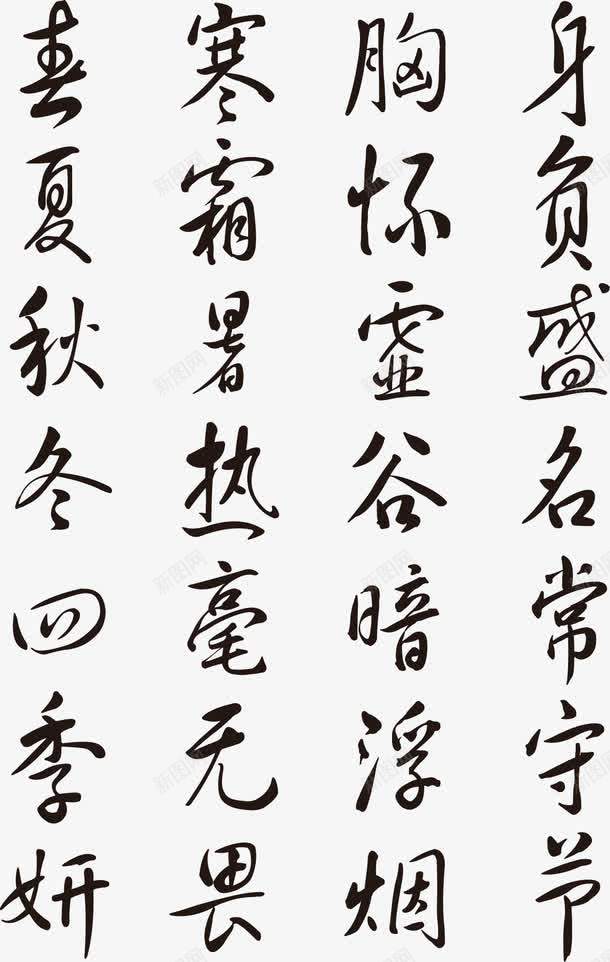 春夏秋冬四季妍
寒霜暑热毫无畏
胸怀虚谷暗浮烟
身负盛名常守节
新图网